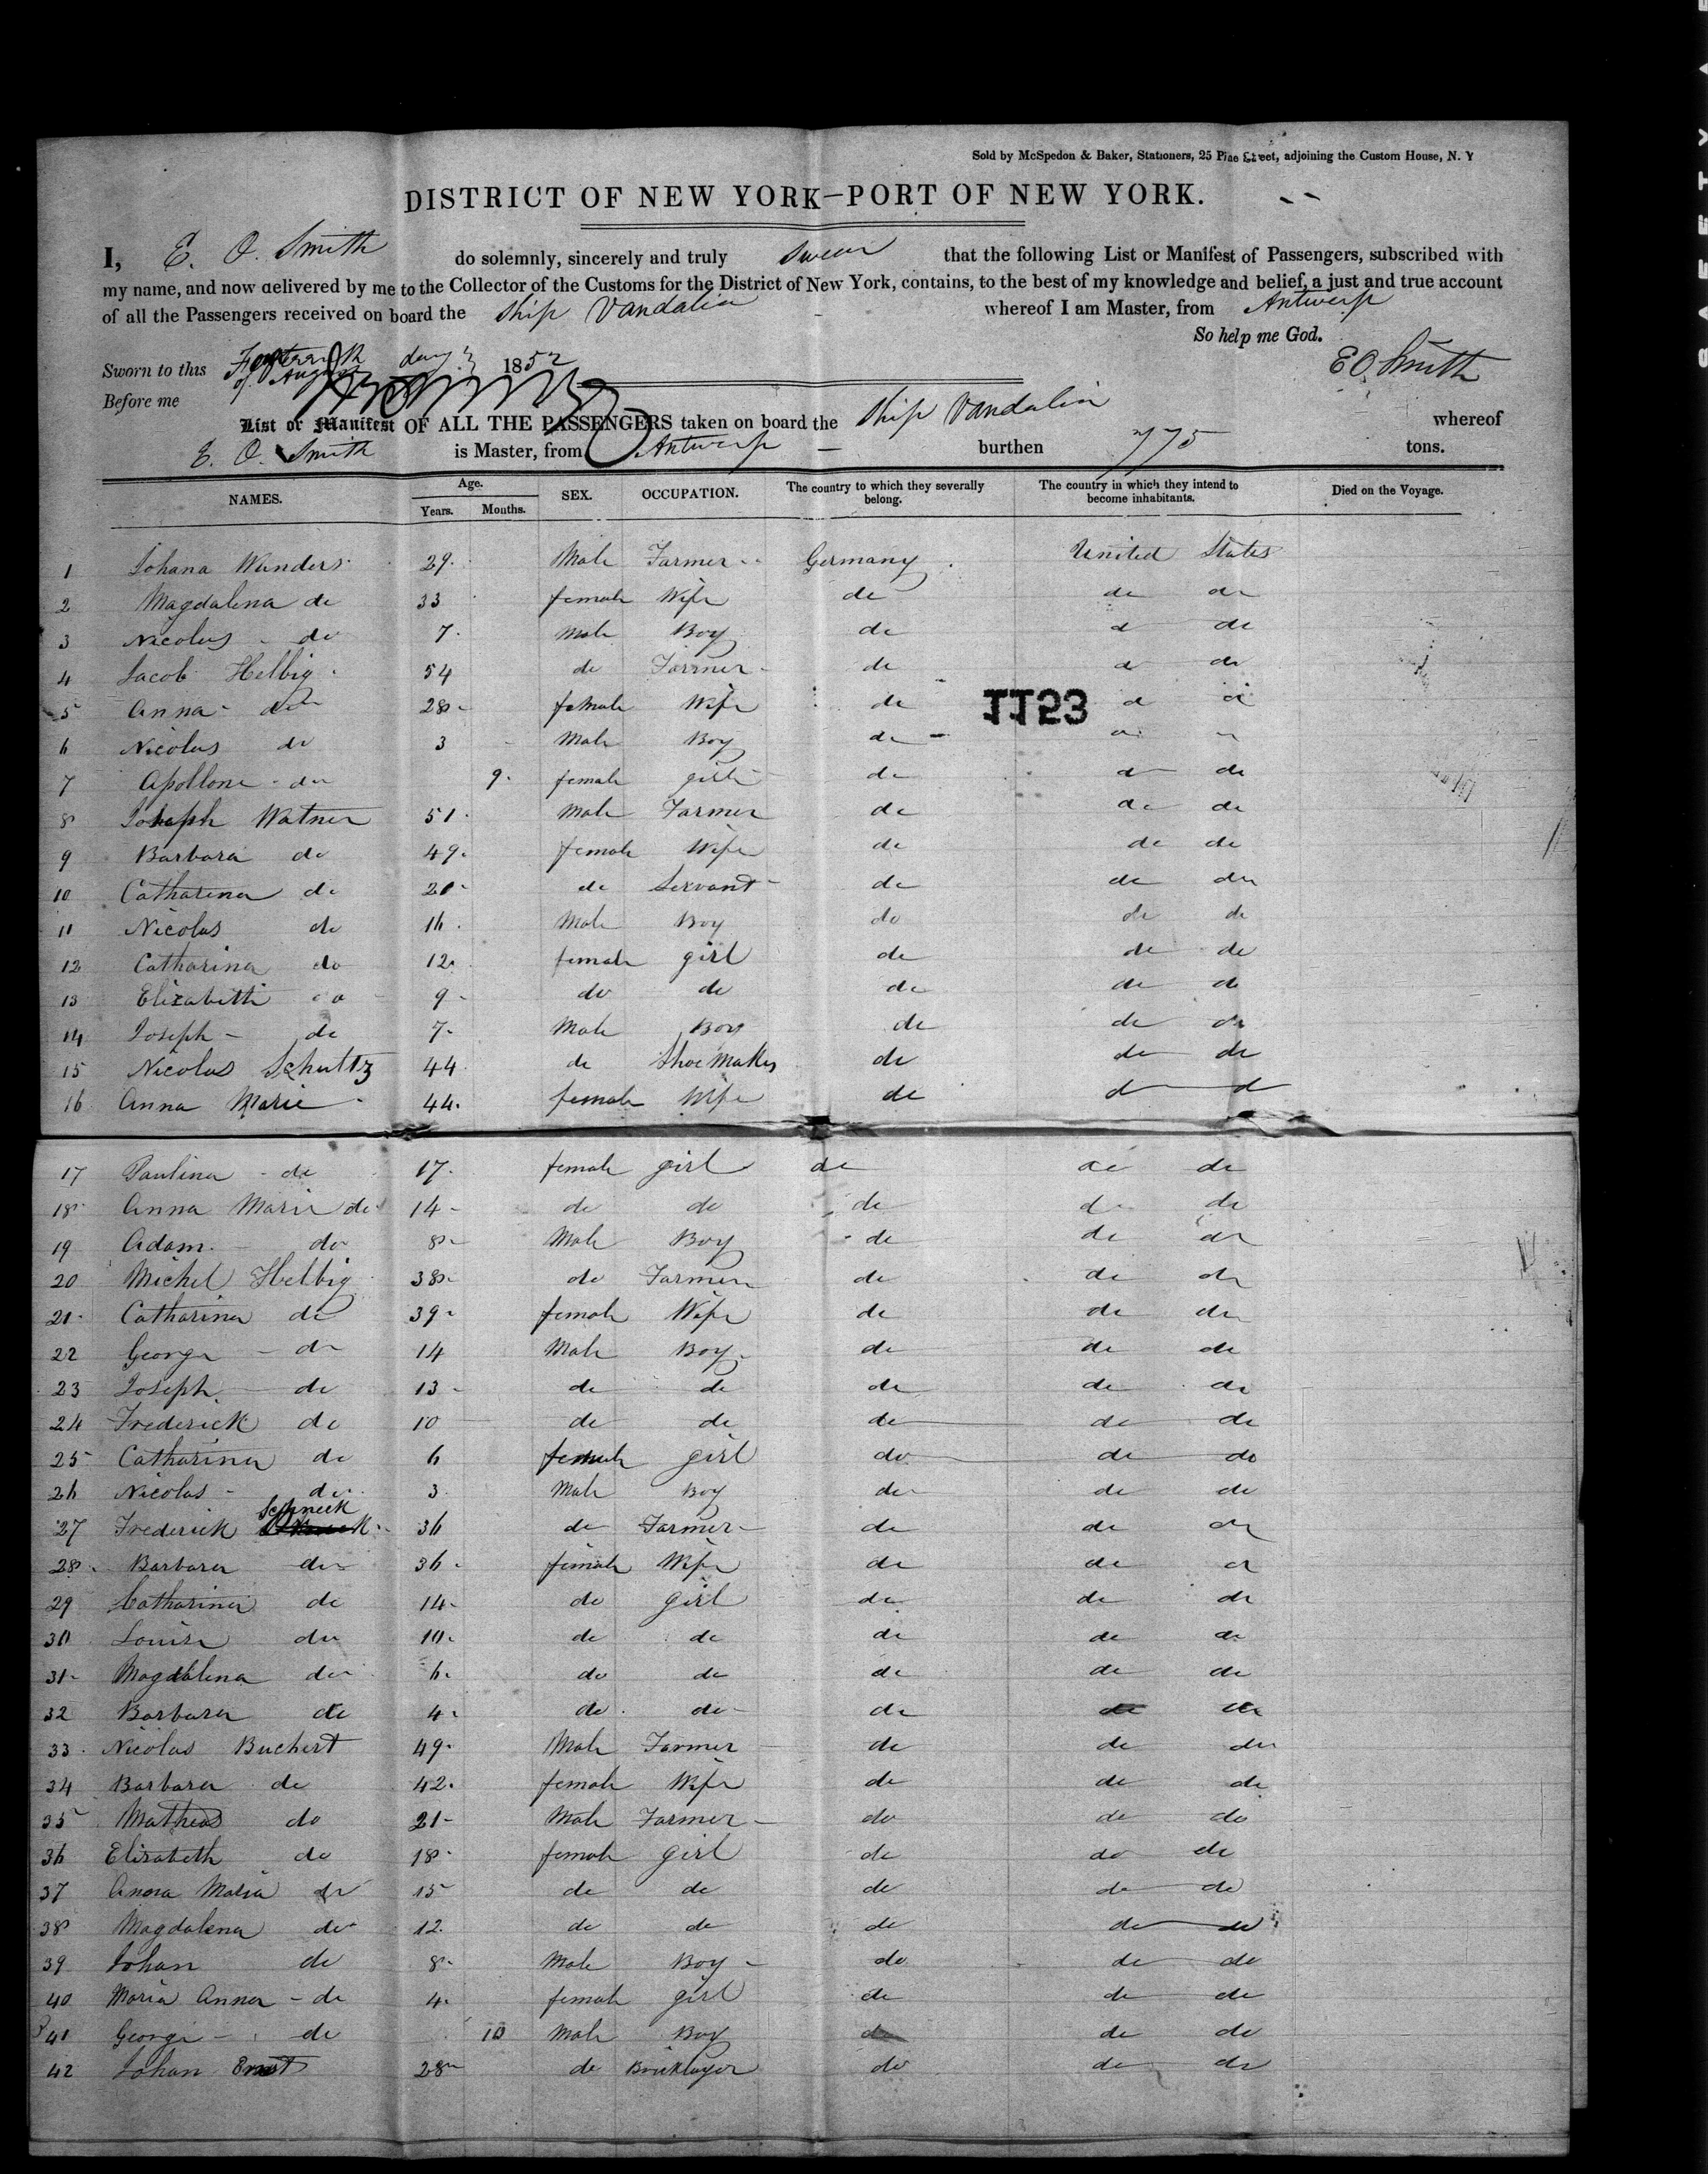 Sold by McSpedon & Baker, Stationers, 25 Pine Street, adjoining the Custom House, N. Y
DISTRICT OF NEW YORK—PORT OF NEW YORK.
I, E. O. Smith do solemnly, sincerely and truly swear that the following List or Manifest of Passengers, subscribed with
my name, and now delivered by me to the Collector of the Customs for the District of New York, contains, to the best of my knowledge and belief, a just and true account
of all the Passengers received on board the Ship Vandalia whereof I am Master, from Antwerp
So help me God.
Sworn to this day 1852
of August
E O Smith
Before me
List or Manifest OF ALL THE PASSENGERS taken on board the Ship Vandalia whereof
E. O. Smith is Master, from Antwerp burthen 775 tons.
NAMES. Age. Years. Months. SEX. OCCUPATION. The country to which they severally belong. The country in which they intend to become inhabitants. Died on the Voyage.
1 Johana Wanders 29 Male Farmer Germany United States
2 Magdalena do 33 female Wife do do do
3 Nicolus do 7 Male Boy do d do
4 Jacob Helbig 54 do Farmer do d do
1153
5 Anna do 28 female Wife do d d
6 Nicolus do 3 Male Boy do
7 Apollone do 9 female girl do d do
8 Joseph Watner 51 Male Farmer do do do
9 Barbara do 49 female Wife do do do
10 Catharina do 20 do Servant do do do
11 Nicolus do 16 Male Boy do do do
12 Catharina do 12 female girl do do do
13 Elizabeth do 9 do do do do do
14 Joseph do 7 Male Boy do do do
15 Nicolus Schultz 44 do Shoe Maker do do do
16 Anna Marie 44 female Wife do d d
17 Paulina do 17 female girl do do do
18 Anna Marie do 14 do do do do do
19 Adam do 8 Male Boy do do do
20 Michel Helbig 38 do Farmer do do do
21 Catharina do 39 female Wife do do do
22 George do 14 Male Boy do do do
23 Joseph do 13 do do do do do
24 Frederick do 10 do do do do do
25 Catharina do 6 female girl do do do
26 Nicolas do 3 Male Boy do do do
27 Frederick Schneck 36 do Farmer do do do
28 Barbara do 36 female Wife do do d
29 Catharina do 14 do girl do do do
30 Louise do 10 do do do do do
31 Magdalena do 6 do do do do do
32 Barbara do 4 do do do do do
33 Nicolas Buchert 49 Male Farmer do do do
34 Barbara do 42 female Wife do do do
35 Matheas do 21 Male Farmer do do do
36 Elizabeth do 18 female girl do do do
37 Anna Maria do 15 do do do do do
38 Magdalena do 12 do do do do do
39 Johan do 8 Male Boy do do do
40 Maria Anna do 4 female girl do do do
41 George do 10 Male Boy do do do
42 Johan Ernst 28 do Bricklayer do do do